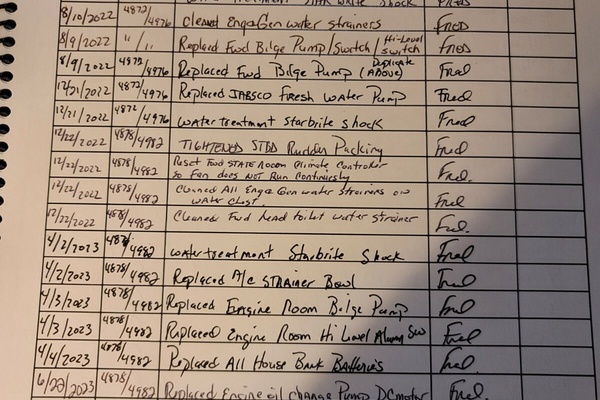 8/10/2022 4872/4976 Cleaned Eng & Gen water strainers FRED
8/9/2022 "/" Replaced Fwd Bilge Pump/Switch/Hi-Level switch FRED
8/9/2022 4872/4976 Replaced Fwd Bilge Pump (Duplicate Above) Fred
12/21/2022 4872/4976 Replaced JABSCO Fresh Water Pump Fred
12/21/2022 4872/4976 water treatment Starbrite Shock Fred
12/22/2022 4878/4982 TIGHTENED STBD Rudder Packing Fred
12/22/2022 4878/4982 Reset Fwd STATE Room Climate Controller
so Fan does NOT Run Continuesly Fred.
12/22/2022 4878/4982 Cleaned All Eng & Gen water strainers
water chest. Fred
12/22/2022 4878/4982 Cleaned Fwd head toilet water strainer Fred.
4/2/2023 4878/4982 water treatment Starbrite Shock Fred
4/2/2023 4878/4982 Replaced A/C STRAINER Bowl Fred
4/3/2023 4878/4982 Replaced Engine Room Bilge Pump Fred
4/3/2023 4878/4982 Replaced Engine Room Hi Level Alarm Sw Fred
4/4/2023 4878/4982 Replaced All House Bank Batteries Fred.
6/22/2023 4878/4982 Replaced Engine oil change Pump DC motor Fred.